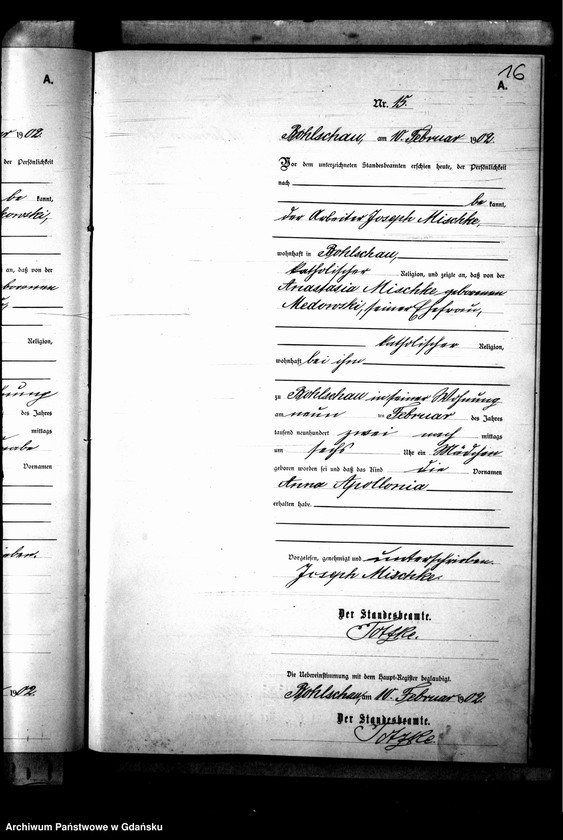 A.
er 1902.
der Persönlichkeit
be kannt,
kowski,
an, daß von der
bornen
Religion,
nung
des Jahres
mittags
Knabe
Vornamen
ieben.
1902.
16
A.
Nr. 15.
Bohlschau, am 10. Februar 1902.
Vor dem unterzeichneten Standesbeamten erschien heute, der Persönlichkeit
nach
be kannt,
der Arbeiter Joseph Mischke,
wohnhaft in Bohlschau,
katholischer Religion, und zeigte an, daß von der
Anastasia Mischke geborenen
Medowski, seiner Ehefrau,
katholischer Religion,
wohnhaft bei ihm
zu Bohlschau in seiner Wohnung
am neun ten Februar des Jahres
tausend neunhundert zwei nach mittags
um sechs Uhr ein Mädchen
geboren worden sei und daß das Kind die Vornamen
Anna Apollonia
erhalten habe.
Vorgelesen, genehmigt und unterschrieben.
Joseph Mischke.
Der Standesbeamte.
Totzke.
Die Uebereinstimmung mit dem Haupt-Register beglaubigt.
Bohlschau, am 10. Februar 1902.
Der Standesbeamte.
Totzke.
Archiwum Państwowe w Gdańsku